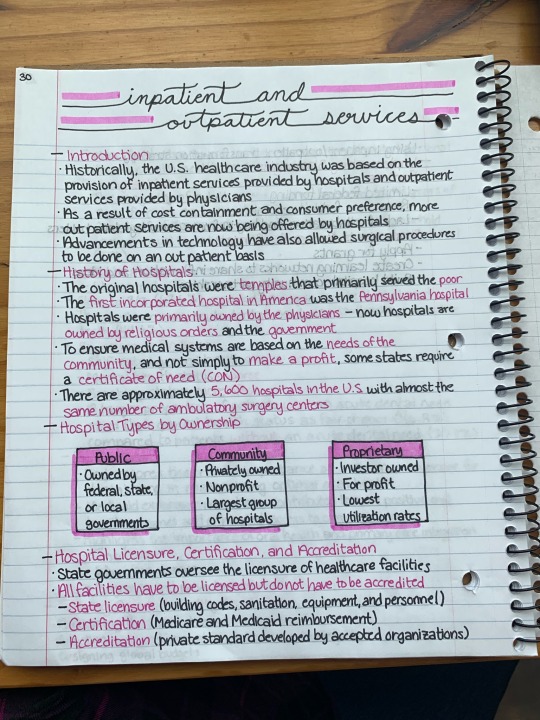 30
inpatient and
outpatient services
- Introduction
· Historically, the U.S. healthcare industry was based on the
provision of inpatient services provided by hospitals and outpatient
services provided by physicians
· As a result of cost containment and consumer preference, more
out patient services are now being offered by hospitals
· Advancements in technology have also allowed surgical procedures
to be done on an out patient basis
- History of Hospitals
· The original hospitals were temples that primarily served the poor
· The first incorporated hospital in America was the Pennsylvania hospital
· Hospitals were primarily owned by the physicians - now hospitals are
owned by religious orders and the government
· To ensure medical systems are based on the needs of the
community, and not simply to make a profit, some states require
a certificate of need (CON)
· There are approximately 5,600 hospitals in the U.S with almost the
same number of ambulatory surgery centers
- Hospital Types by Ownership
Public
· Owned by
federal, state,
or local
governments
Community
· Privately owned
· Nonprofit
· Largest group
of hospitals
Proprietary
· Investor owned
· For profit
· Lowest
utilization rates
- Hospital Licensure, Certification, and Accreditation
· State governments oversee the licensure of healthcare facilities
· All facilities have to be licensed but do not have to be accredited
- State licensure (building codes, sanitation, equipment, and personnel)
- Certification (Medicare and Medicaid reimbursement)
- Accreditation (private standard developed by accepted organizations)